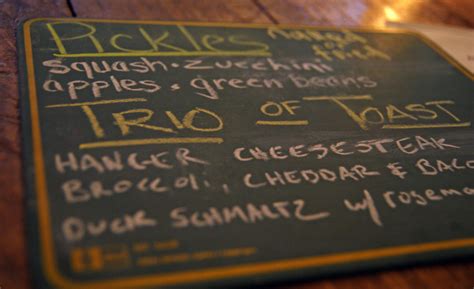 Pickles naked or fried
squash · zucchini
apples · green beans
TRIO OF TOAST
HANGER CHEESESTEAK
BROCCOLI, CHEDDAR & BACO
DUCK SCHMALTZ w/ rosem